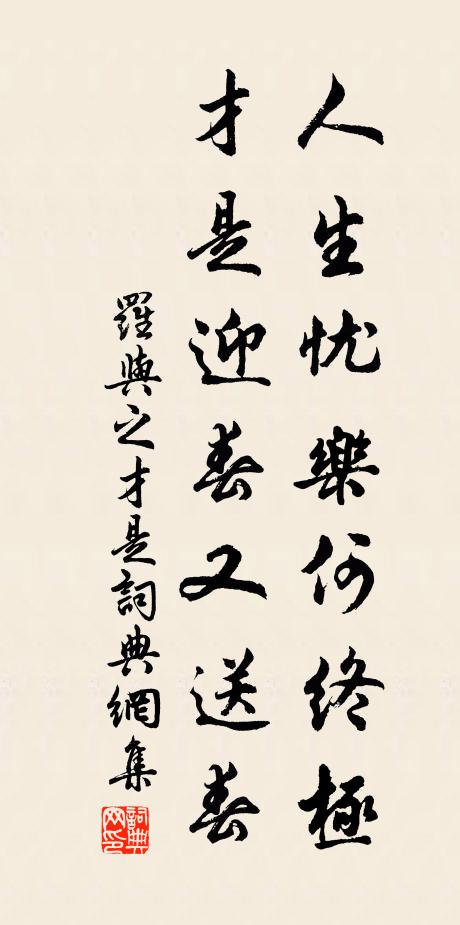 人生忧樂何终極
才是迎春又送春
羅與之才是詞典網集
詞典網印